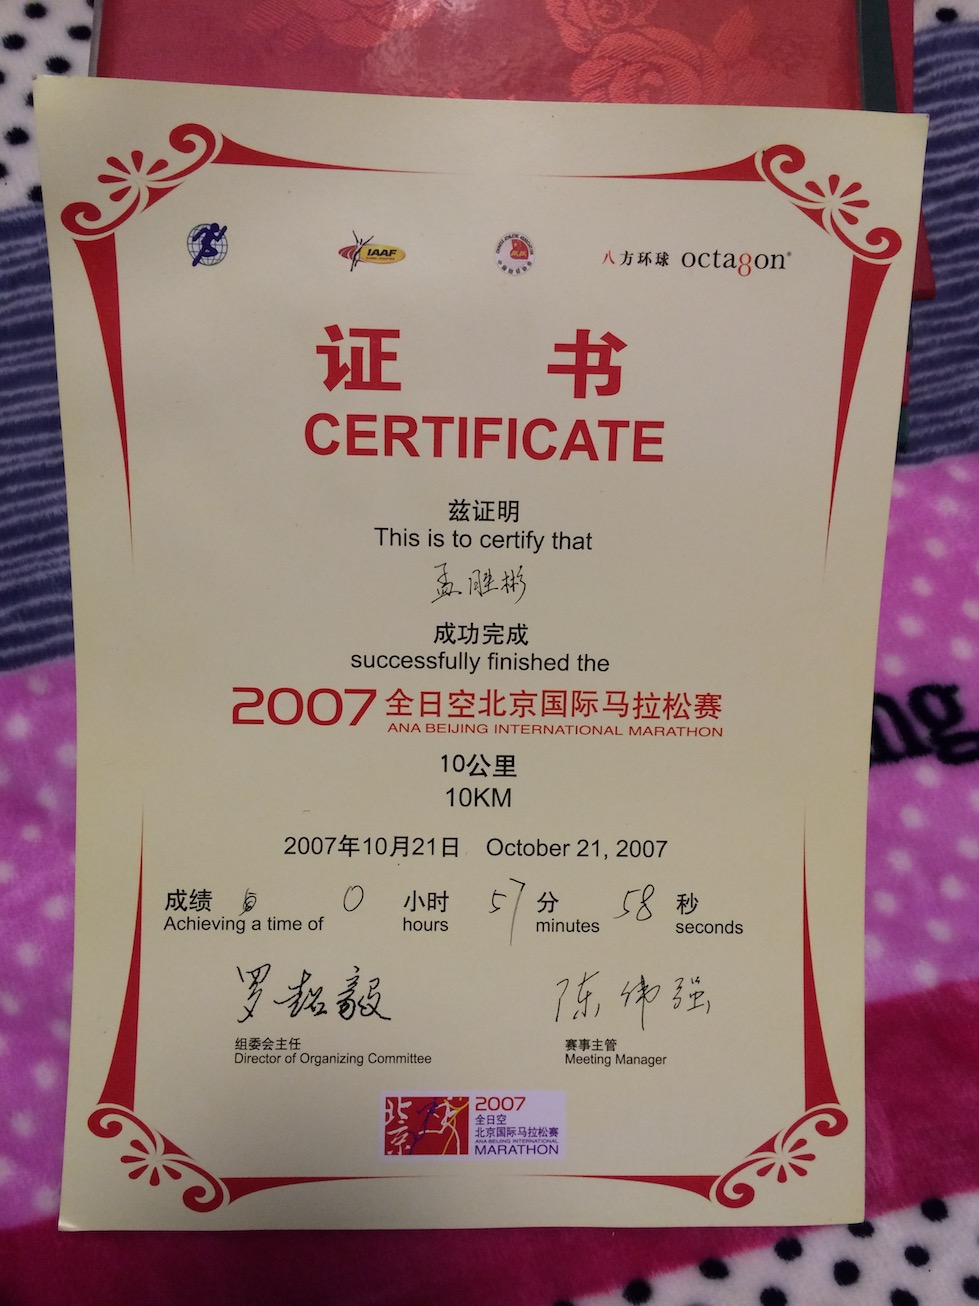 IAAF
八方环球 octagon
证 书
CERTIFICATE
兹证明
This is to certify that
孟胜彬
成功完成
successfully finished the
2007 全日空北京国际马拉松赛
ANA BEIJING INTERNATIONAL MARATHON
10公里
10KM
2007年10月21日 October 21, 2007
成绩 0 小时 57 分 58 秒
Achieving a time of hours minutes seconds
罗超毅 陈伟强
组委会主任 赛事主管
Director of Organizing Committee Meeting Manager
北京
2007
全日空
北京国际马拉松赛
ANA BEIJING INTERNATIONAL
MARATHON
ng